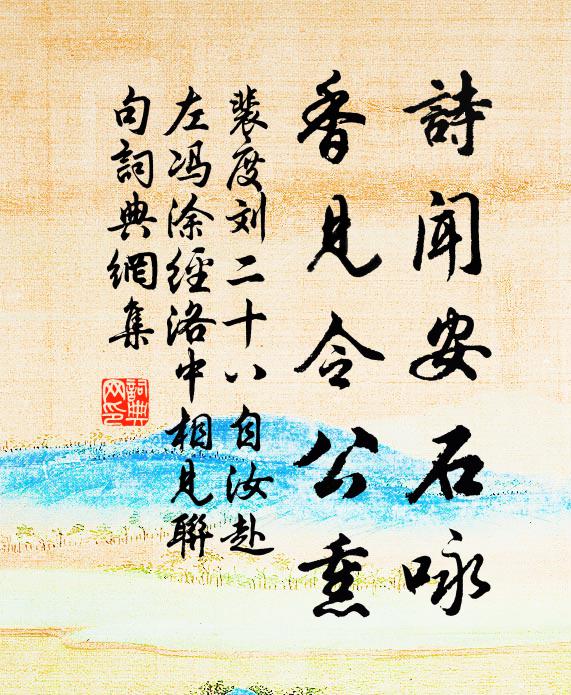 詩闻安石咏
香見令公熏
裴度刘二十八自汝赴
左冯涂經洛中相見聯
句詞典網集
詞典网印